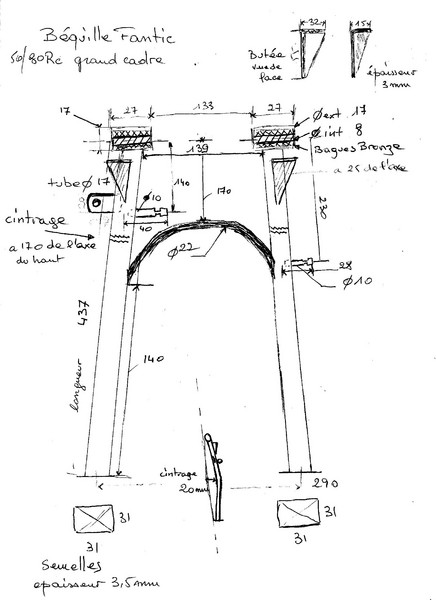 Béquille Fantic
50/80Rc grand cadre
32
15
Butée
vue de
face
épaisseur
3mm
17
27
133
27
Øext 17
Ø int 8
Bagues Bronze
139
a 25 de l'axe
tube Ø 17
10
140
170
230
40
cintrage
a 170 de l'axe
du haut
Ø22
28
Ø10
437
longueur
140
cintrage
20mm
290
31
31
31
31
Semelles
epaisseur 3,5mm